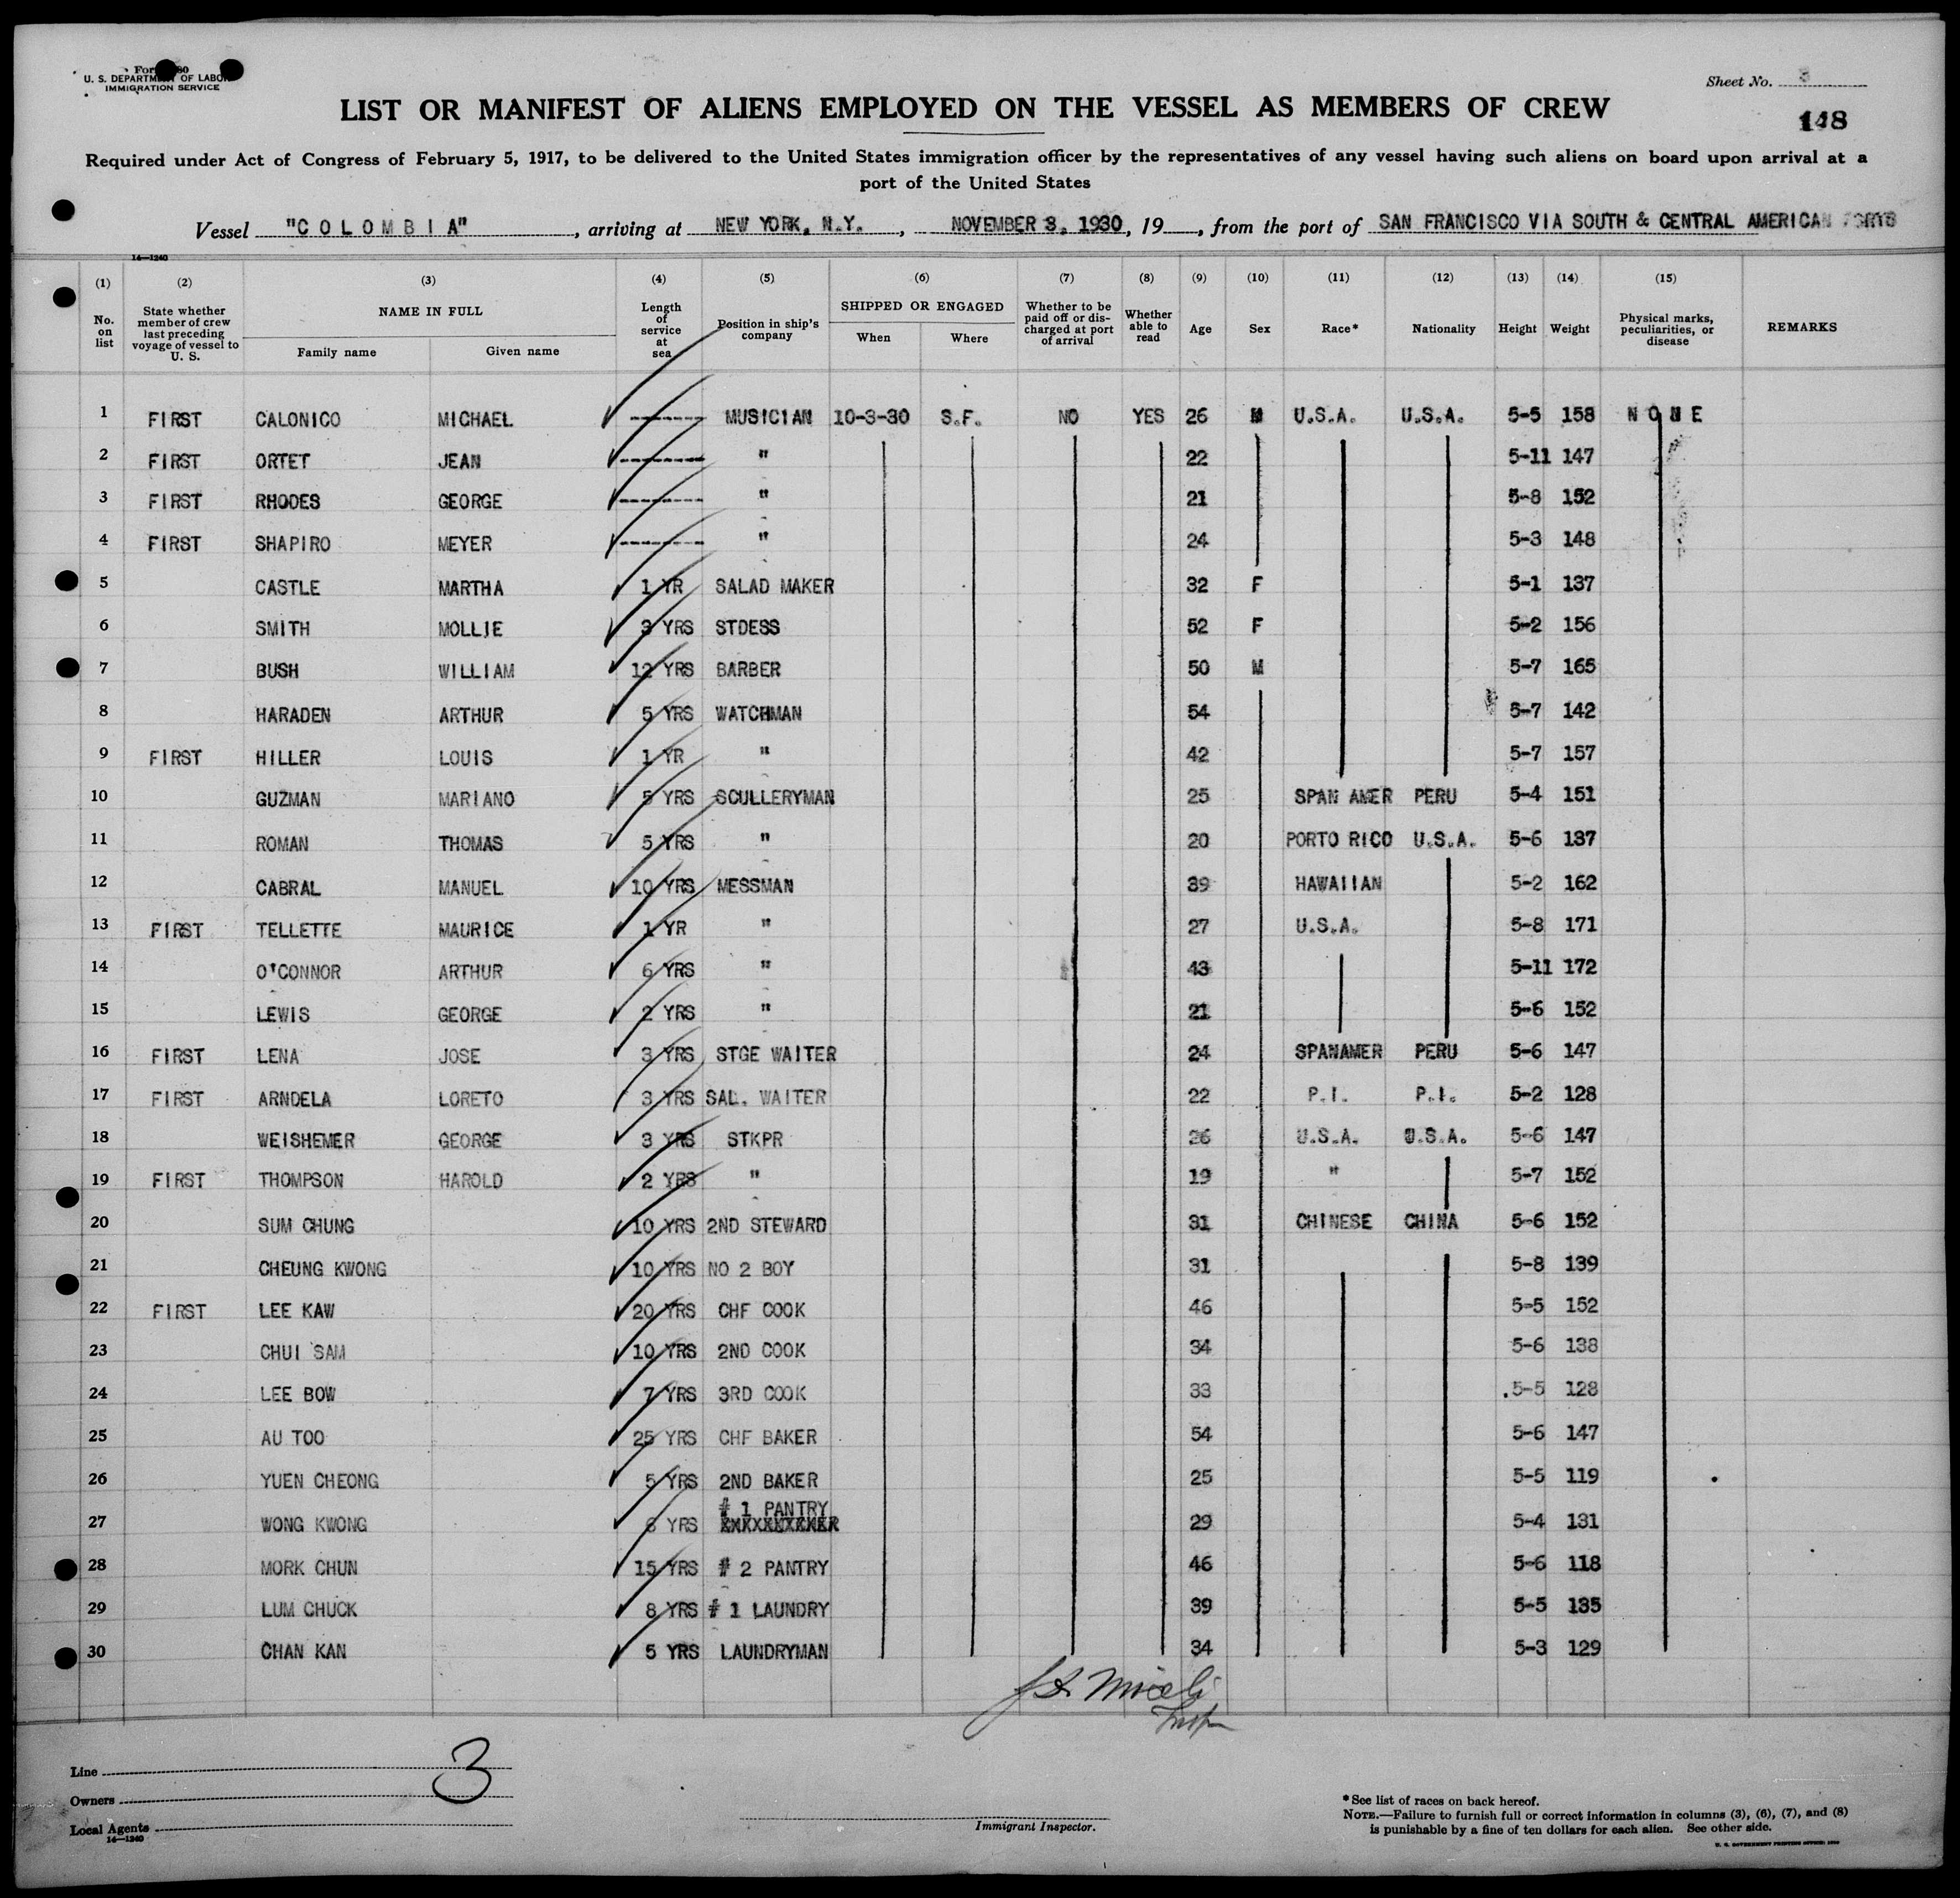 U. S. DEPARTMENT OF LABOR
IMMIGRATION SERVICE
Sheet No. 3
148
LIST OR MANIFEST OF ALIENS EMPLOYED ON THE VESSEL AS MEMBERS OF CREW
Required under Act of Congress of February 5, 1917, to be delivered to the United States immigration officer by the representatives of any vessel having such aliens on board upon arrival at a
port of the United States
Vessel "COLOMBIA", arriving at NEW YORK, N.Y., NOVEMBER 3, 1930, 19, from the port of SAN FRANCISCO VIA SOUTH & CENTRAL AMERICAN PORTS
14—1240
(1) (2) (3) (4) (5) (6) (7) (8) (9) (10) (11) (12) (13) (14) (15)
No. on list
State whether member of crew last preceding voyage of vessel to U. S.
NAME IN FULL
Family name
Given name
Length of service at sea
Position in ship's company
SHIPPED OR ENGAGED
When
Where
Whether to be paid off or discharged at port of arrival
Whether able to read
Age
Sex
Race*
Nationality
Height
Weight
Physical marks, peculiarities, or disease
REMARKS
1 FIRST CALONICO MICHAEL -------- MUSICIAN 10-3-30 S.F. NO YES 26 M U.S.A. U.S.A. 5-5 158 NONE
2 FIRST ORTET JEAN -------- " 22 5-11 147
3 FIRST RHODES GEORGE -------- " 21 5-8 152
4 FIRST SHAPIRO MEYER -------- " 24 5-3 148
5 CASTLE MARTHA 1 YR SALAD MAKER 32 F 5-1 137
6 SMITH MOLLIE 3 YRS STDESS 52 F 5-2 156
7 BUSH WILLIAM 12 YRS BARBER 50 M 5-7 165
8 HARADEN ARTHUR 5 YRS WATCHMAN 54 5-7 142
9 FIRST HILLER LOUIS 1 YR " 42 5-7 157
10 GUZMAN MARIANO 5 YRS SCULLERYMAN 25 SPAN AMER PERU 5-4 151
11 ROMAN THOMAS 5 YRS " 20 PORTO RICO U.S.A. 5-6 137
12 CABRAL MANUEL 10 YRS MESSMAN 39 HAWAIIAN 5-2 162
13 FIRST TELLETTE MAURICE 1 YR " 27 U.S.A. 5-8 171
14 O'CONNOR ARTHUR 6 YRS " 43 5-11 172
15 LEWIS GEORGE 2 YRS " 21 5-6 152
16 FIRST LENA JOSE 3 YRS STGE WAITER 24 SPANAMER PERU 5-6 147
17 FIRST ARNDELA LORETO 3 YRS SAL. WAITER 22 P.I. P.I. 5-2 128
18 WEISHEMER GEORGE 3 YRS STKPR 26 U.S.A. U.S.A. 5-6 147
19 FIRST THOMPSON HAROLD 2 YRS " 19 " 5-7 152
20 SUM CHUNG 10 YRS 2ND STEWARD 31 CHINESE CHINA 5-6 152
21 CHEUNG KWONG 10 YRS NO 2 BOY 31 5-8 139
22 FIRST LEE KAW 20 YRS CHF COOK 46 5-5 152
23 CHUI SAM 10 YRS 2ND COOK 34 5-6 138
24 LEE BOW 7 YRS 3RD COOK 33 5-5 128
25 AU TOO 25 YRS CHF BAKER 54 5-6 147
26 YUEN CHEONG 5 YRS 2ND BAKER 25 5-5 119
27 WONG KWONG 6 YRS # 1 PANTRY 29 5-4 131
28 MORK CHUN 15 YRS # 2 PANTRY 46 5-6 118
29 LUM CHUCK 8 YRS # 1 LAUNDRY 39 5-5 135
30 CHAN KAN 5 YRS LAUNDRYMAN 34 5-3 129
Line
3
Owners
Local Agents
14—1240
Immigrant Inspector.
*See list of races on back hereof.
NOTE.—Failure to furnish full or correct information in columns (3), (6), (7), and (8)
is punishable by a fine of ten dollars for each alien. See other side.